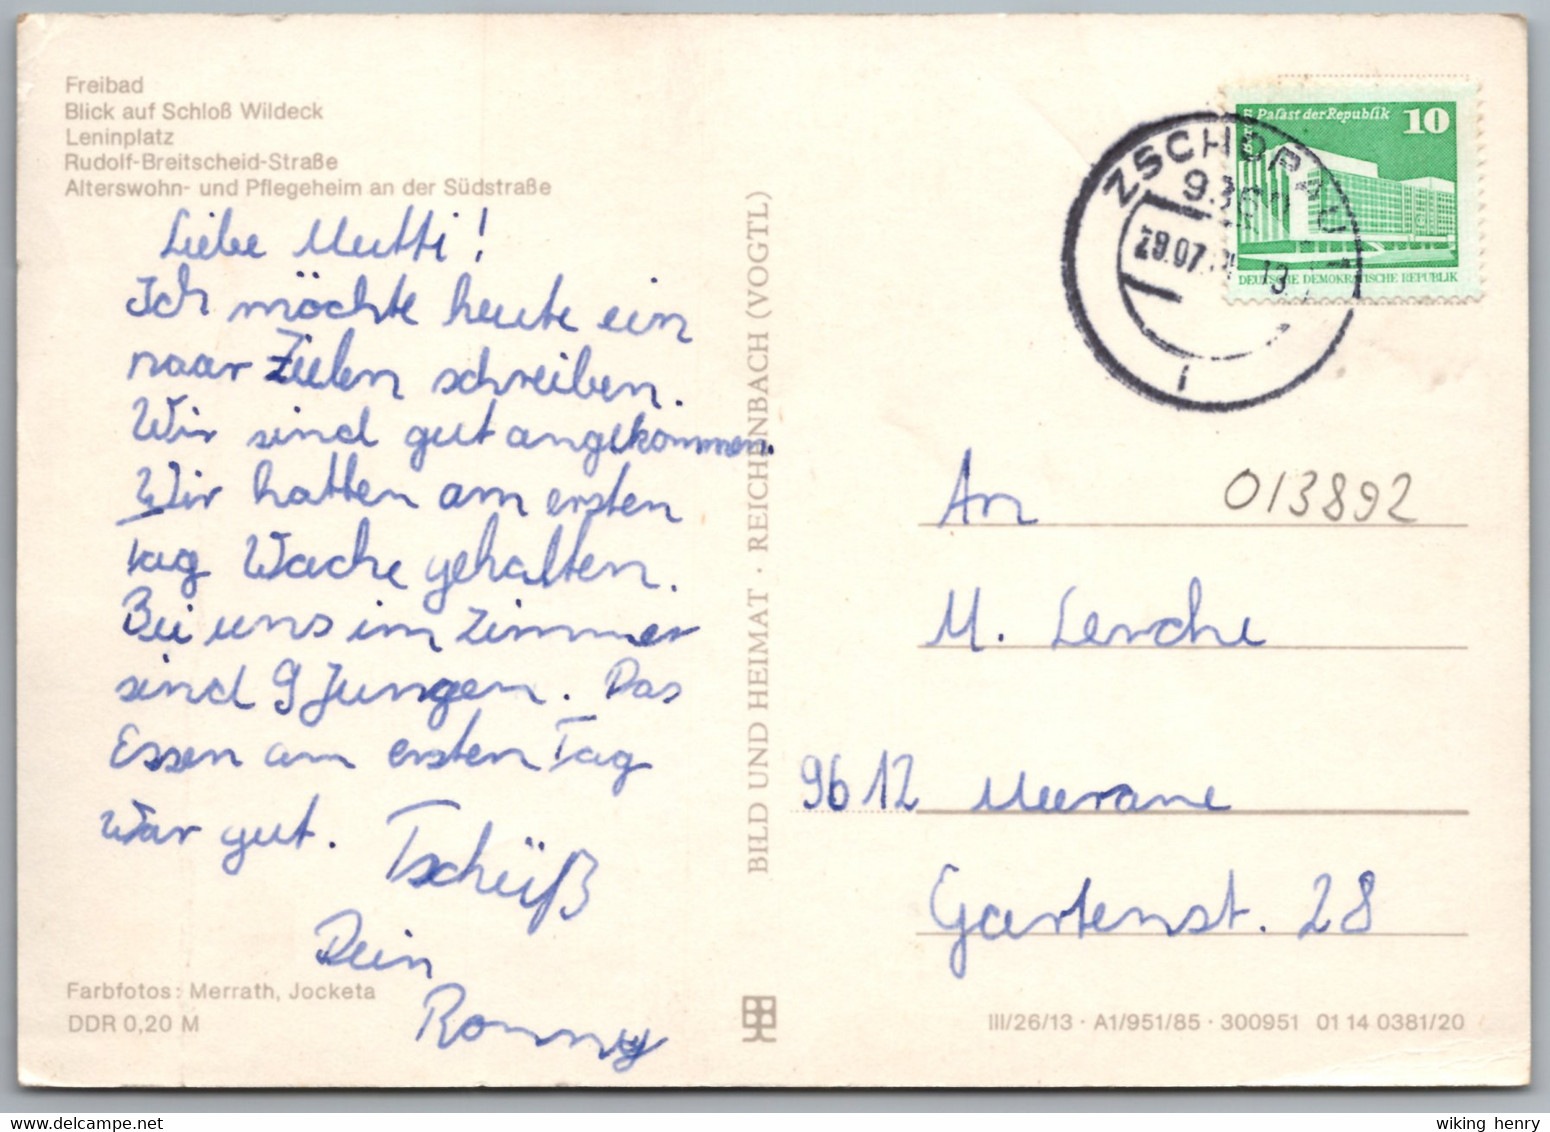 Freibad
Blick auf Schloß Wildeck
Leninplatz
Rudolf-Breitscheid-Straße
Alterswohn- und Pflegeheim an der Südstraße
Liebe Mutti!
Ich möchte heute ein
paar Zeilen schreiben.
Wir sind gut angekommen.
Wir hatten am ersten
Tag Wache gehalten.
Bei uns im Zimmer
sind 9 Jungen. Das
Essen am ersten Tag
war gut. Tschüß
Dein
Ronny
Farbfotos: Merrath, Jocketa
DDR 0,20 M
BILD UND HEIMAT · REICHENBACH (VOGTL)
Palast der Republik 10
DEUTSCHE DEMOKRATISCHE REPUBLIK
ZSCHOPAU 1
29.07. 13
An
013892
M. Lerche
9612 Meerane
Gartenst. 28
III/26/13 · A1/951/85 · 300951 01 14 0381/20
wiking henry